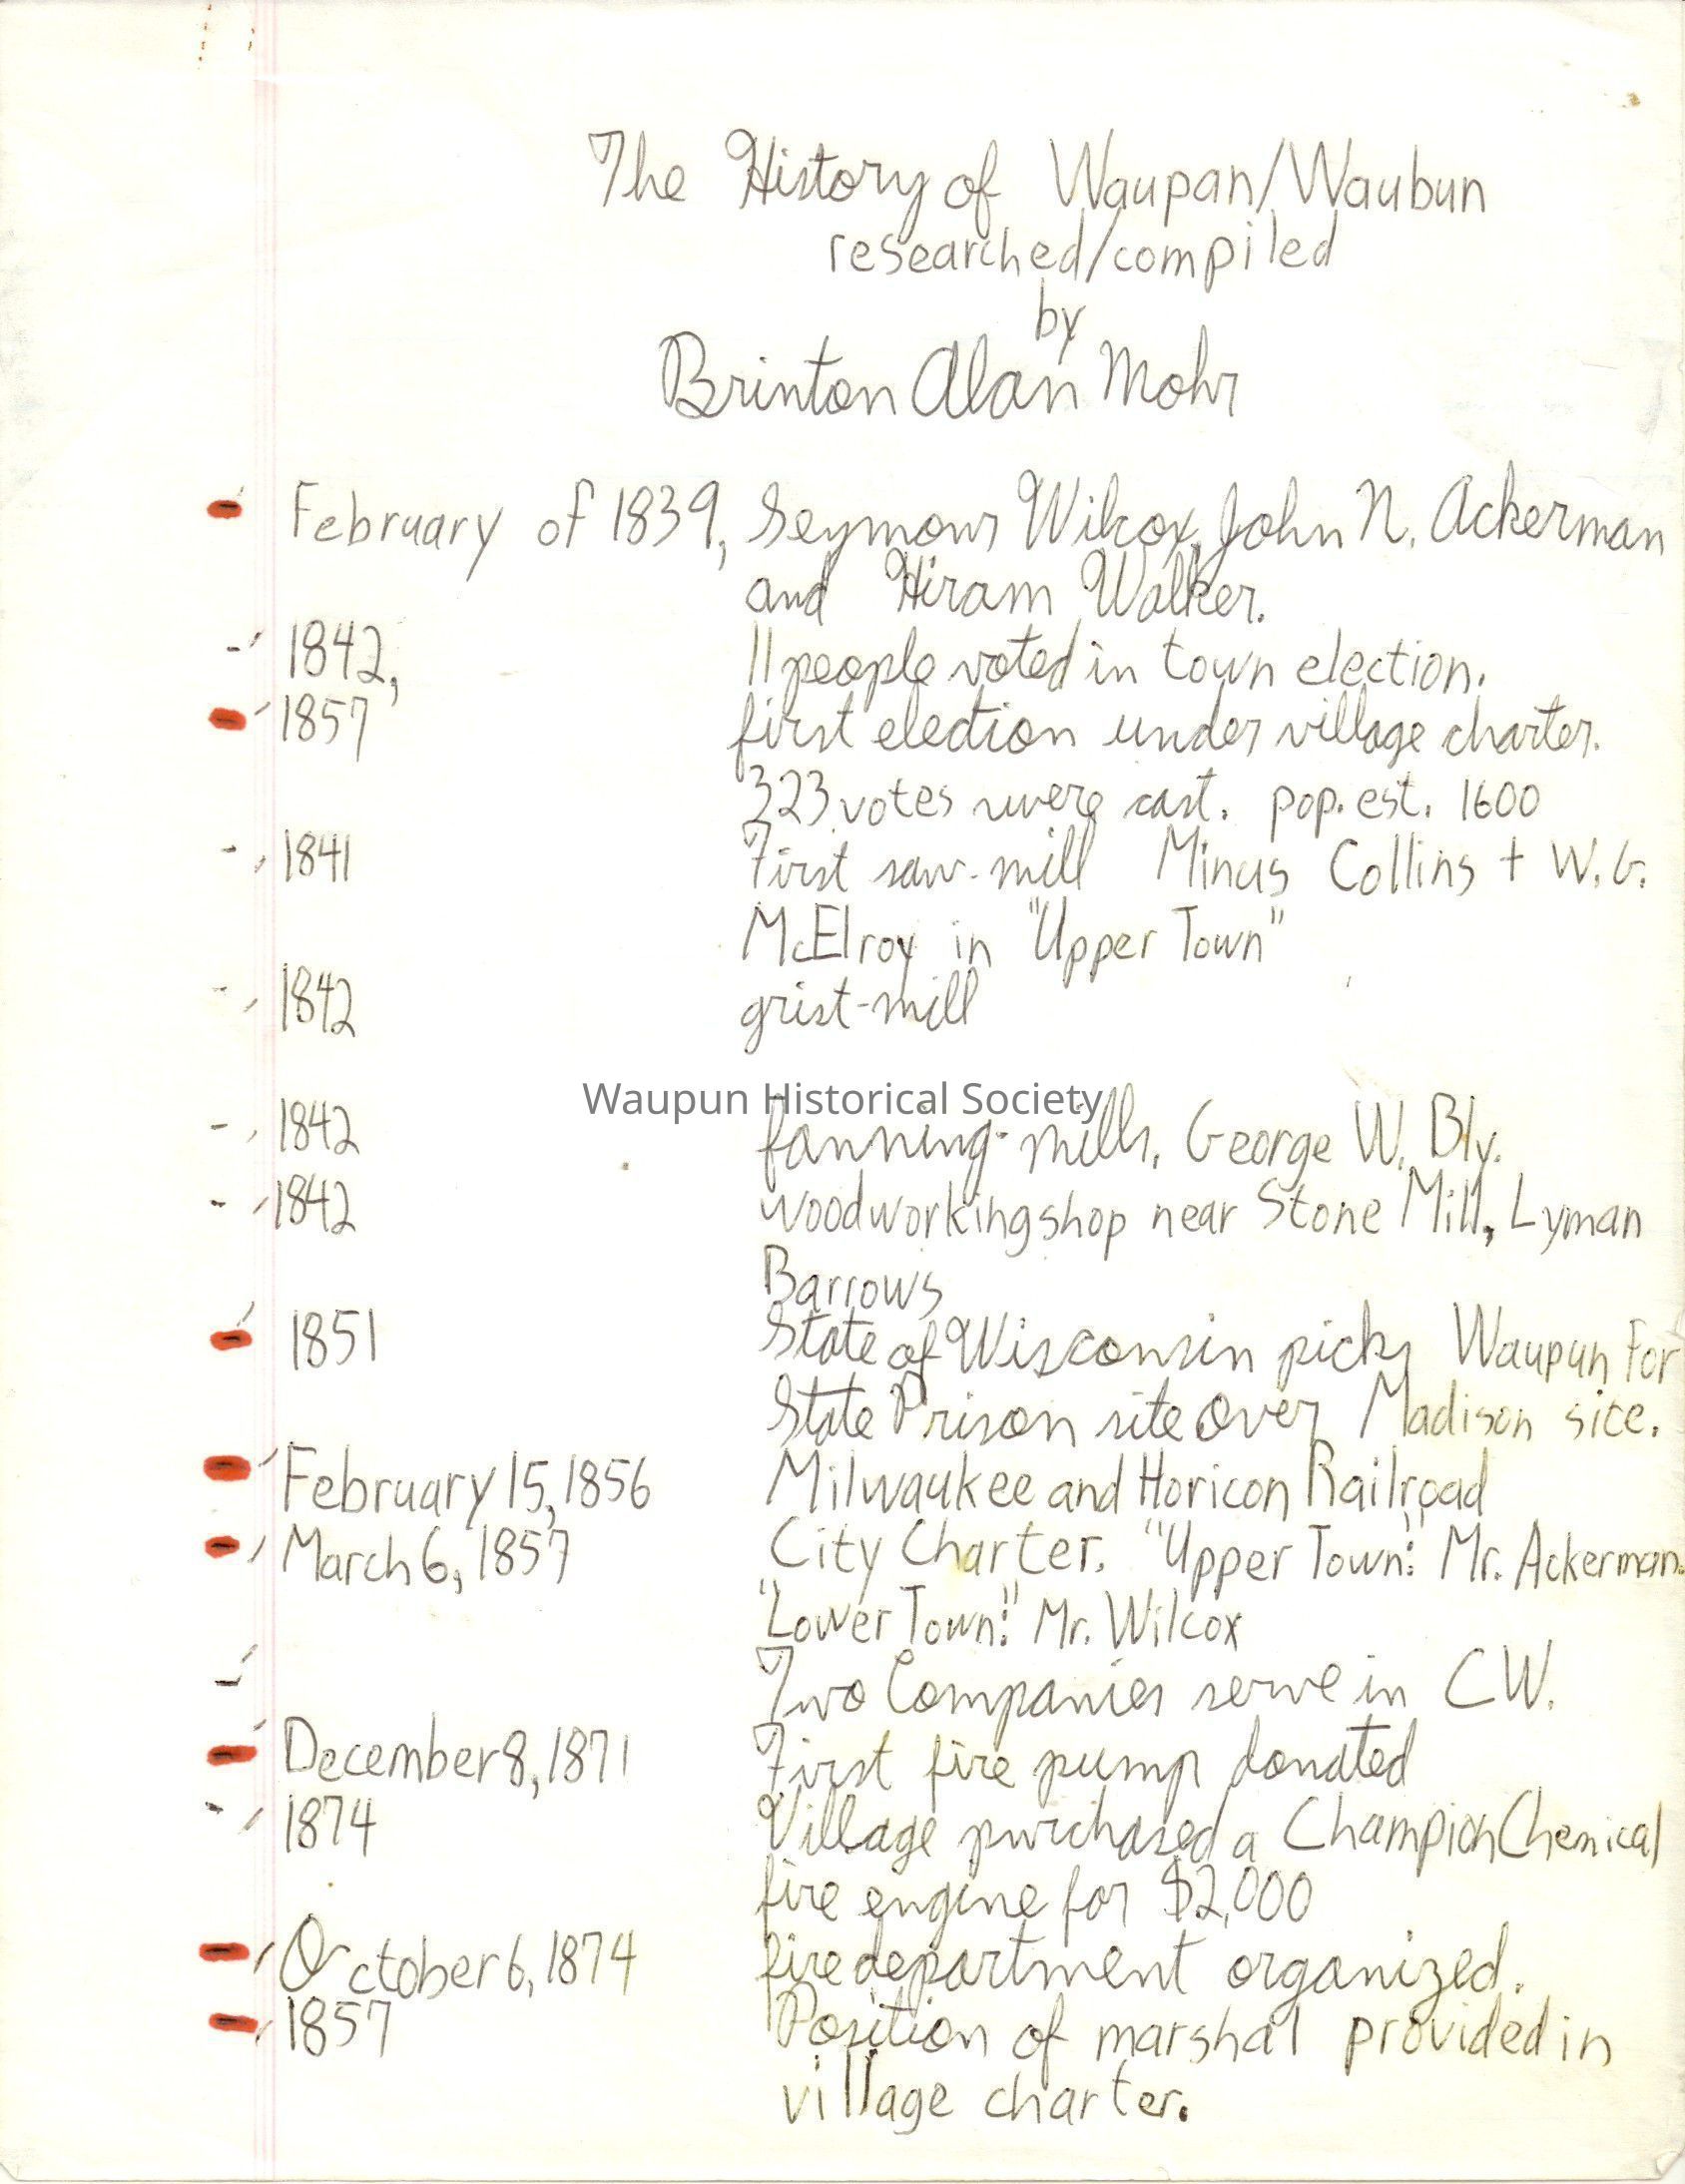 The History of Waupan/Waubun
researched/compiled
by
Brinton Alan Mohr
February of 1839, Seymour Wilcox, John N. Ackerman
and Hiram Walker.
1842, 11 people voted in town election.
1857 first election under village charter.
323 votes were cast. pop. est. 1600
1841 First saw-mill Minus Collins + W.G.
McElroy in "Upper Town"
1842 grist-mill
Waupun Historical Society
1842 fanning-mills, George W. Bly.
1842 woodworking shop near Stone Mill, Lyman
Barrows
1851 State of Wisconsin picks Waupun For
State Prison site over Madison site.
February 15, 1856 Milwaukee and Horicon Railroad
March 6, 1857 City Charter. "Upper Town:" Mr. Ackerman.
"Lower Town:" Mr. Wilcox
Two Companies serve in CW.
December 8, 1871 First fire pump donated
1874 Village purchased a Champion Chemical
fire engine for $2,000
October 6, 1874 fire department organized.
1857 Position of marshal provided in
village charter.